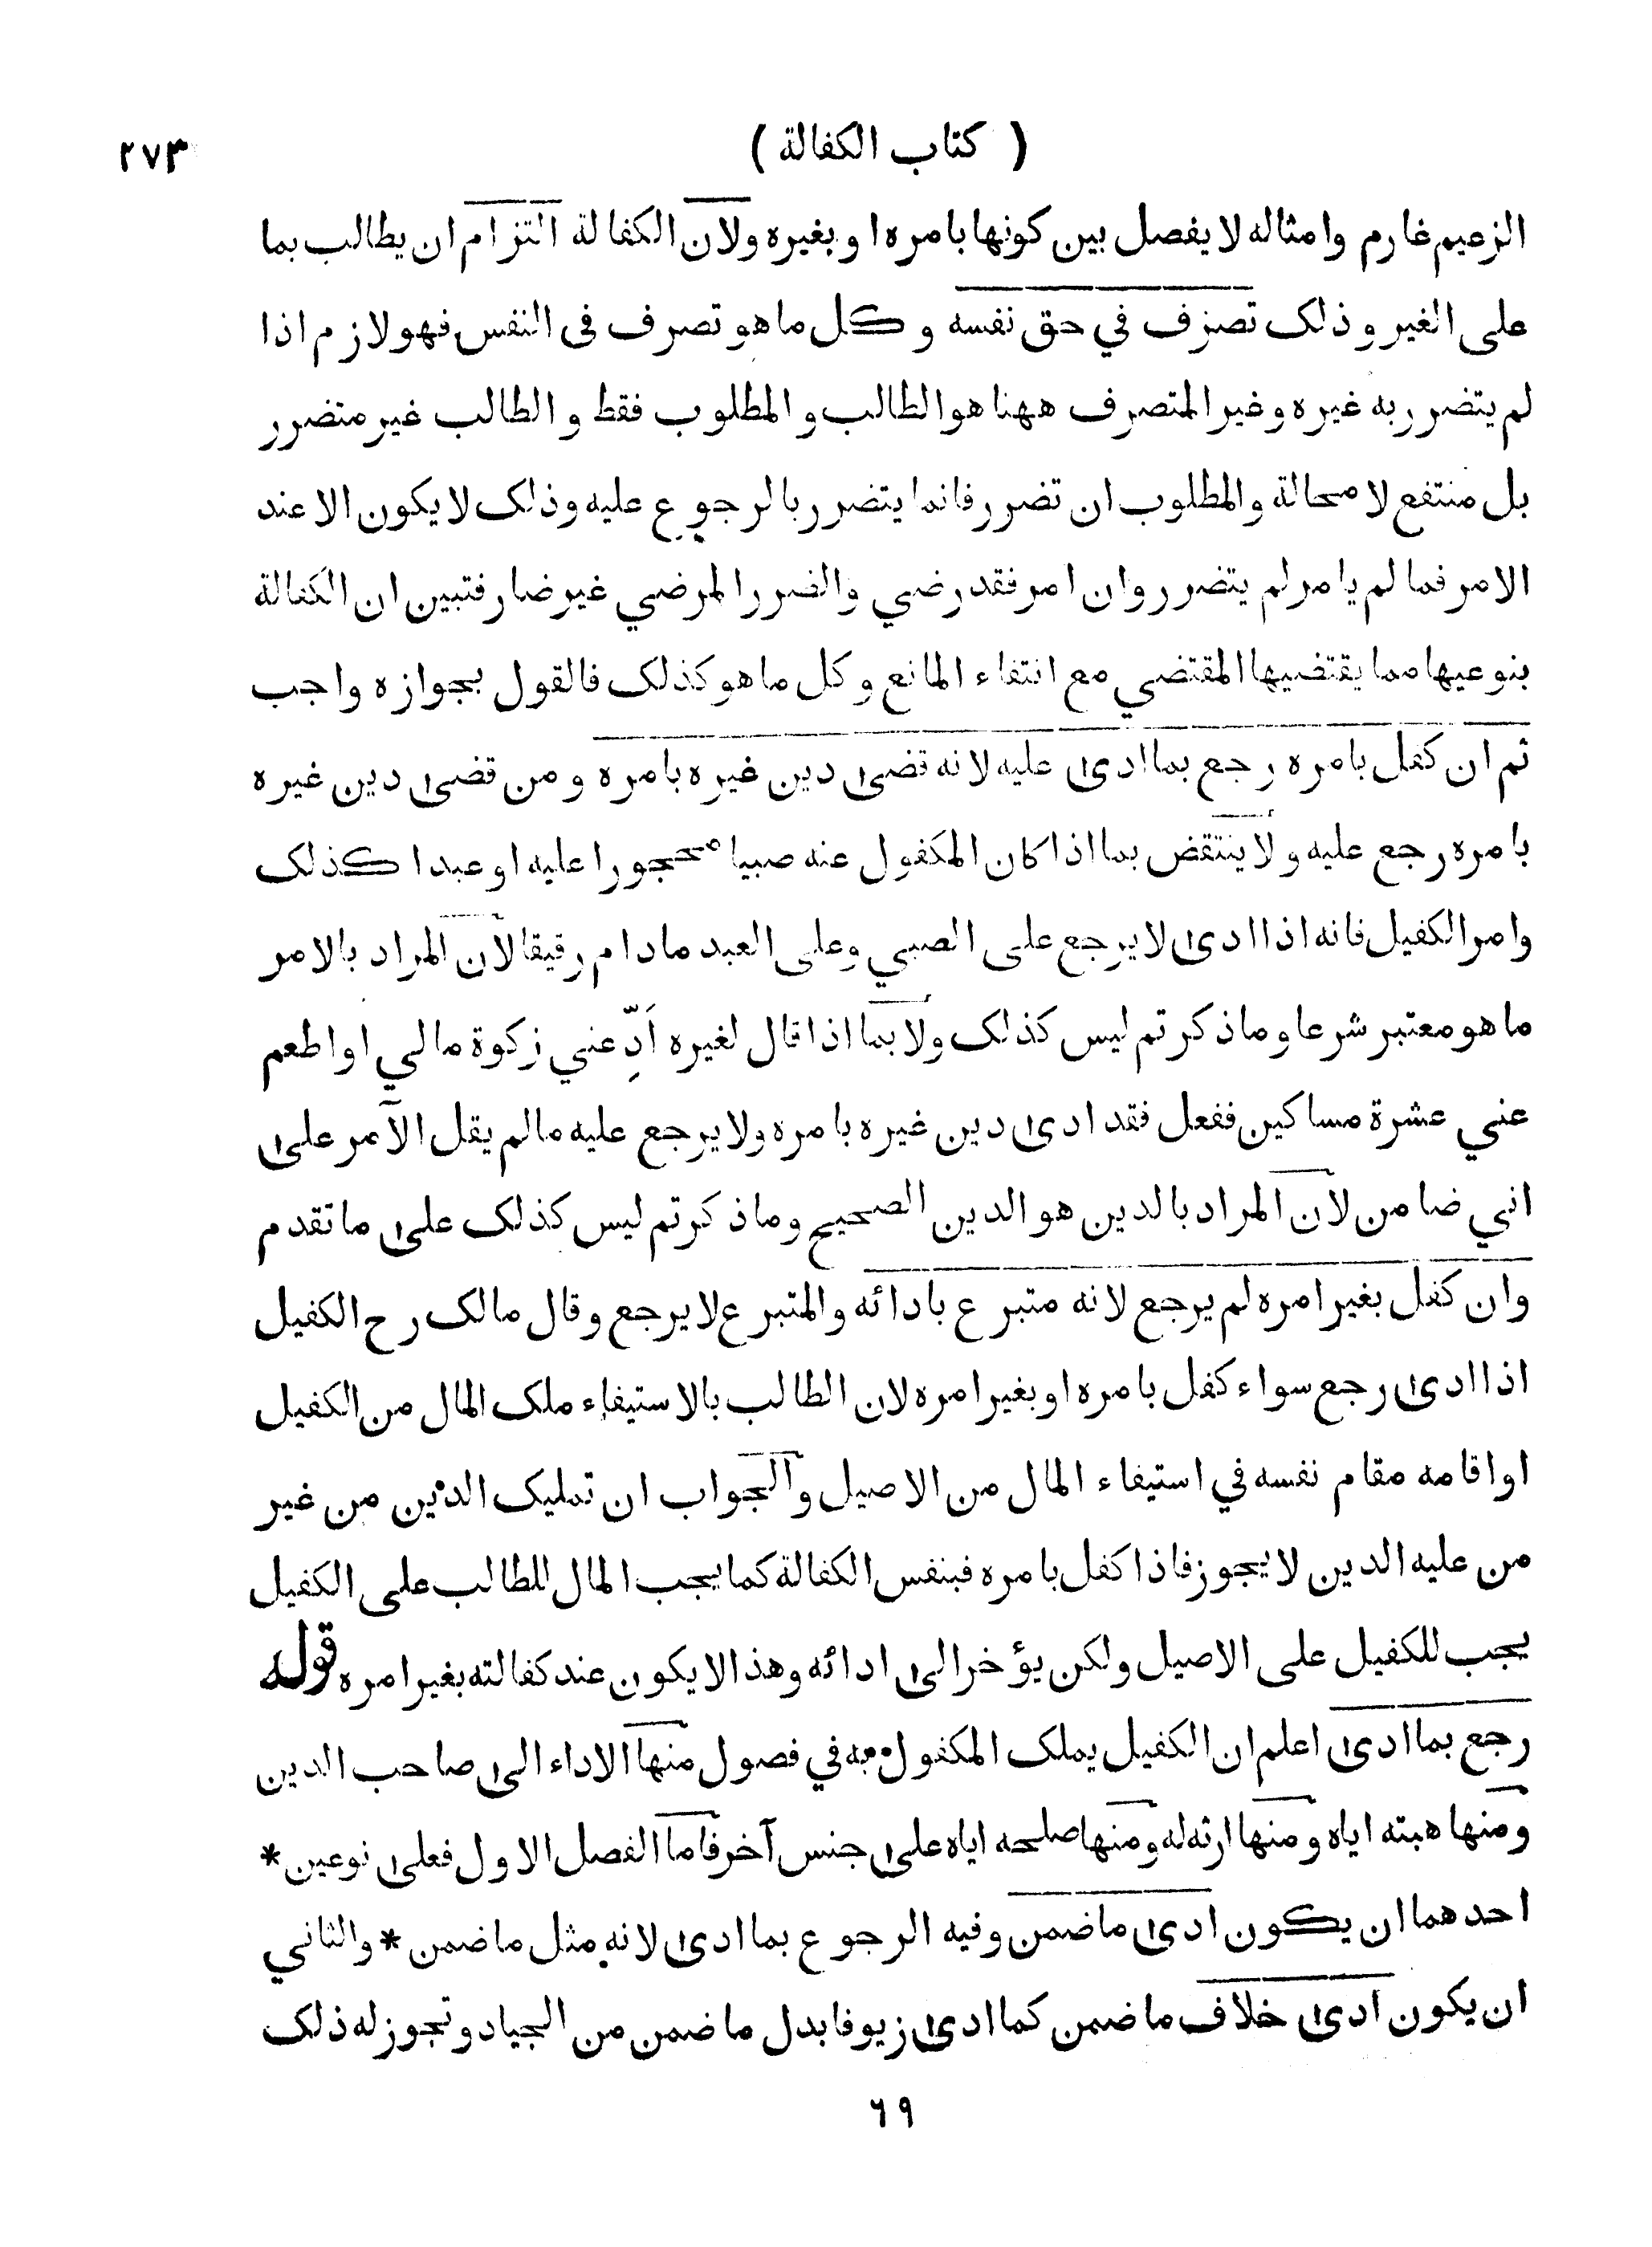 ( كتاب الكفالة )
٢٧٣
الزعيم غارم وامثاله لا يفصل بين كونها بامره او بغيره ولان الكفالة التزام ان يطالب بما
على الغير و ذلك تصرف في حق نفسه و كل ما هو تصرف فى النفس فهو لازم اذا
لم يتضرر به غيره وغير المتصرف ههنا هو الطالب و المطلوب فقط و الطالب غير متضرر
بل منتفع لا محالة والمطلوب ان تضرر فانما يتضرر بالرجوع عليه وذلك لا يكون الا عند
الامر فما لم يامر لم يتضرر وان امر فقد رضي والضرر المرضي غير ضار فتبين ان الكفالة
بنوعيها مما يقتضيها المقتضي مع انتفاء المانع و كل ما هو كذلك فالقول بجوازه واجب
ثم ان كفل بامره رجع بما ادى عليه لانه قضى دين غيره بامره و من قضى دين غيره
بامره رجع عليه و لا ينتقض بما اذا كان المكفول عنه صبيا محجورا عليه او عبدا كذلك
وامر الكفيل فانه اذا ادى لا يرجع على الصبي وعلى العبد مادام رقيقا لان المراد بالامر
ما هو معتبر شرعا وما ذكرتم ليس كذلك ولا بما اذا قال لغيره اَدِّ عني زكوة مالي او اطعم
عني عشرة مساكين ففعل فقد ادى دين غيره بامره ولا يرجع عليه مالم يقل الآمر على
اني ضامن لان المراد بالدين هو الدين الصحيح وما ذكرتم ليس كذلك على ما تقدم
وان كفل بغير امره لم يرجع لانه متبرع بادائه والمتبرع لا يرجع وقال مالك رح الكفيل
اذا ادى رجع سواء كفل بامره او بغير امره لان الطالب بالاستيفاء ملك المال من الكفيل
او اقامه مقام نفسه في استيفاء المال من الاصيل والجواب ان تمليك الدين من غير
من عليه الدين لا يجوز فاذا كفل بامره فبنفس الكفالة كما يجب المال للطالب على الكفيل
يجب للكفيل على الاصيل ولكن يؤخر الى ادائه وهذا لا يكون عند كفالته بغير امره قوله
رجع بما ادى اعلم ان الكفيل يملك المكفول به في فصول منها الاداء الى صاحب الدين
ومنها هبته اياه ومنها ارثه له ومنها صلحه اياه على جنس آخر فاما الفصل الاول فعلى نوعين *
احدهما ان يكون ادى ما ضمن وفيه الرجوع بما ادى لانه مثل ما ضمن * والثاني
ان يكون ادى خلاف ما ضمن كما ادى زيوفا بدل ما ضمن من الجياد وتجوز له ذلك
٦٩